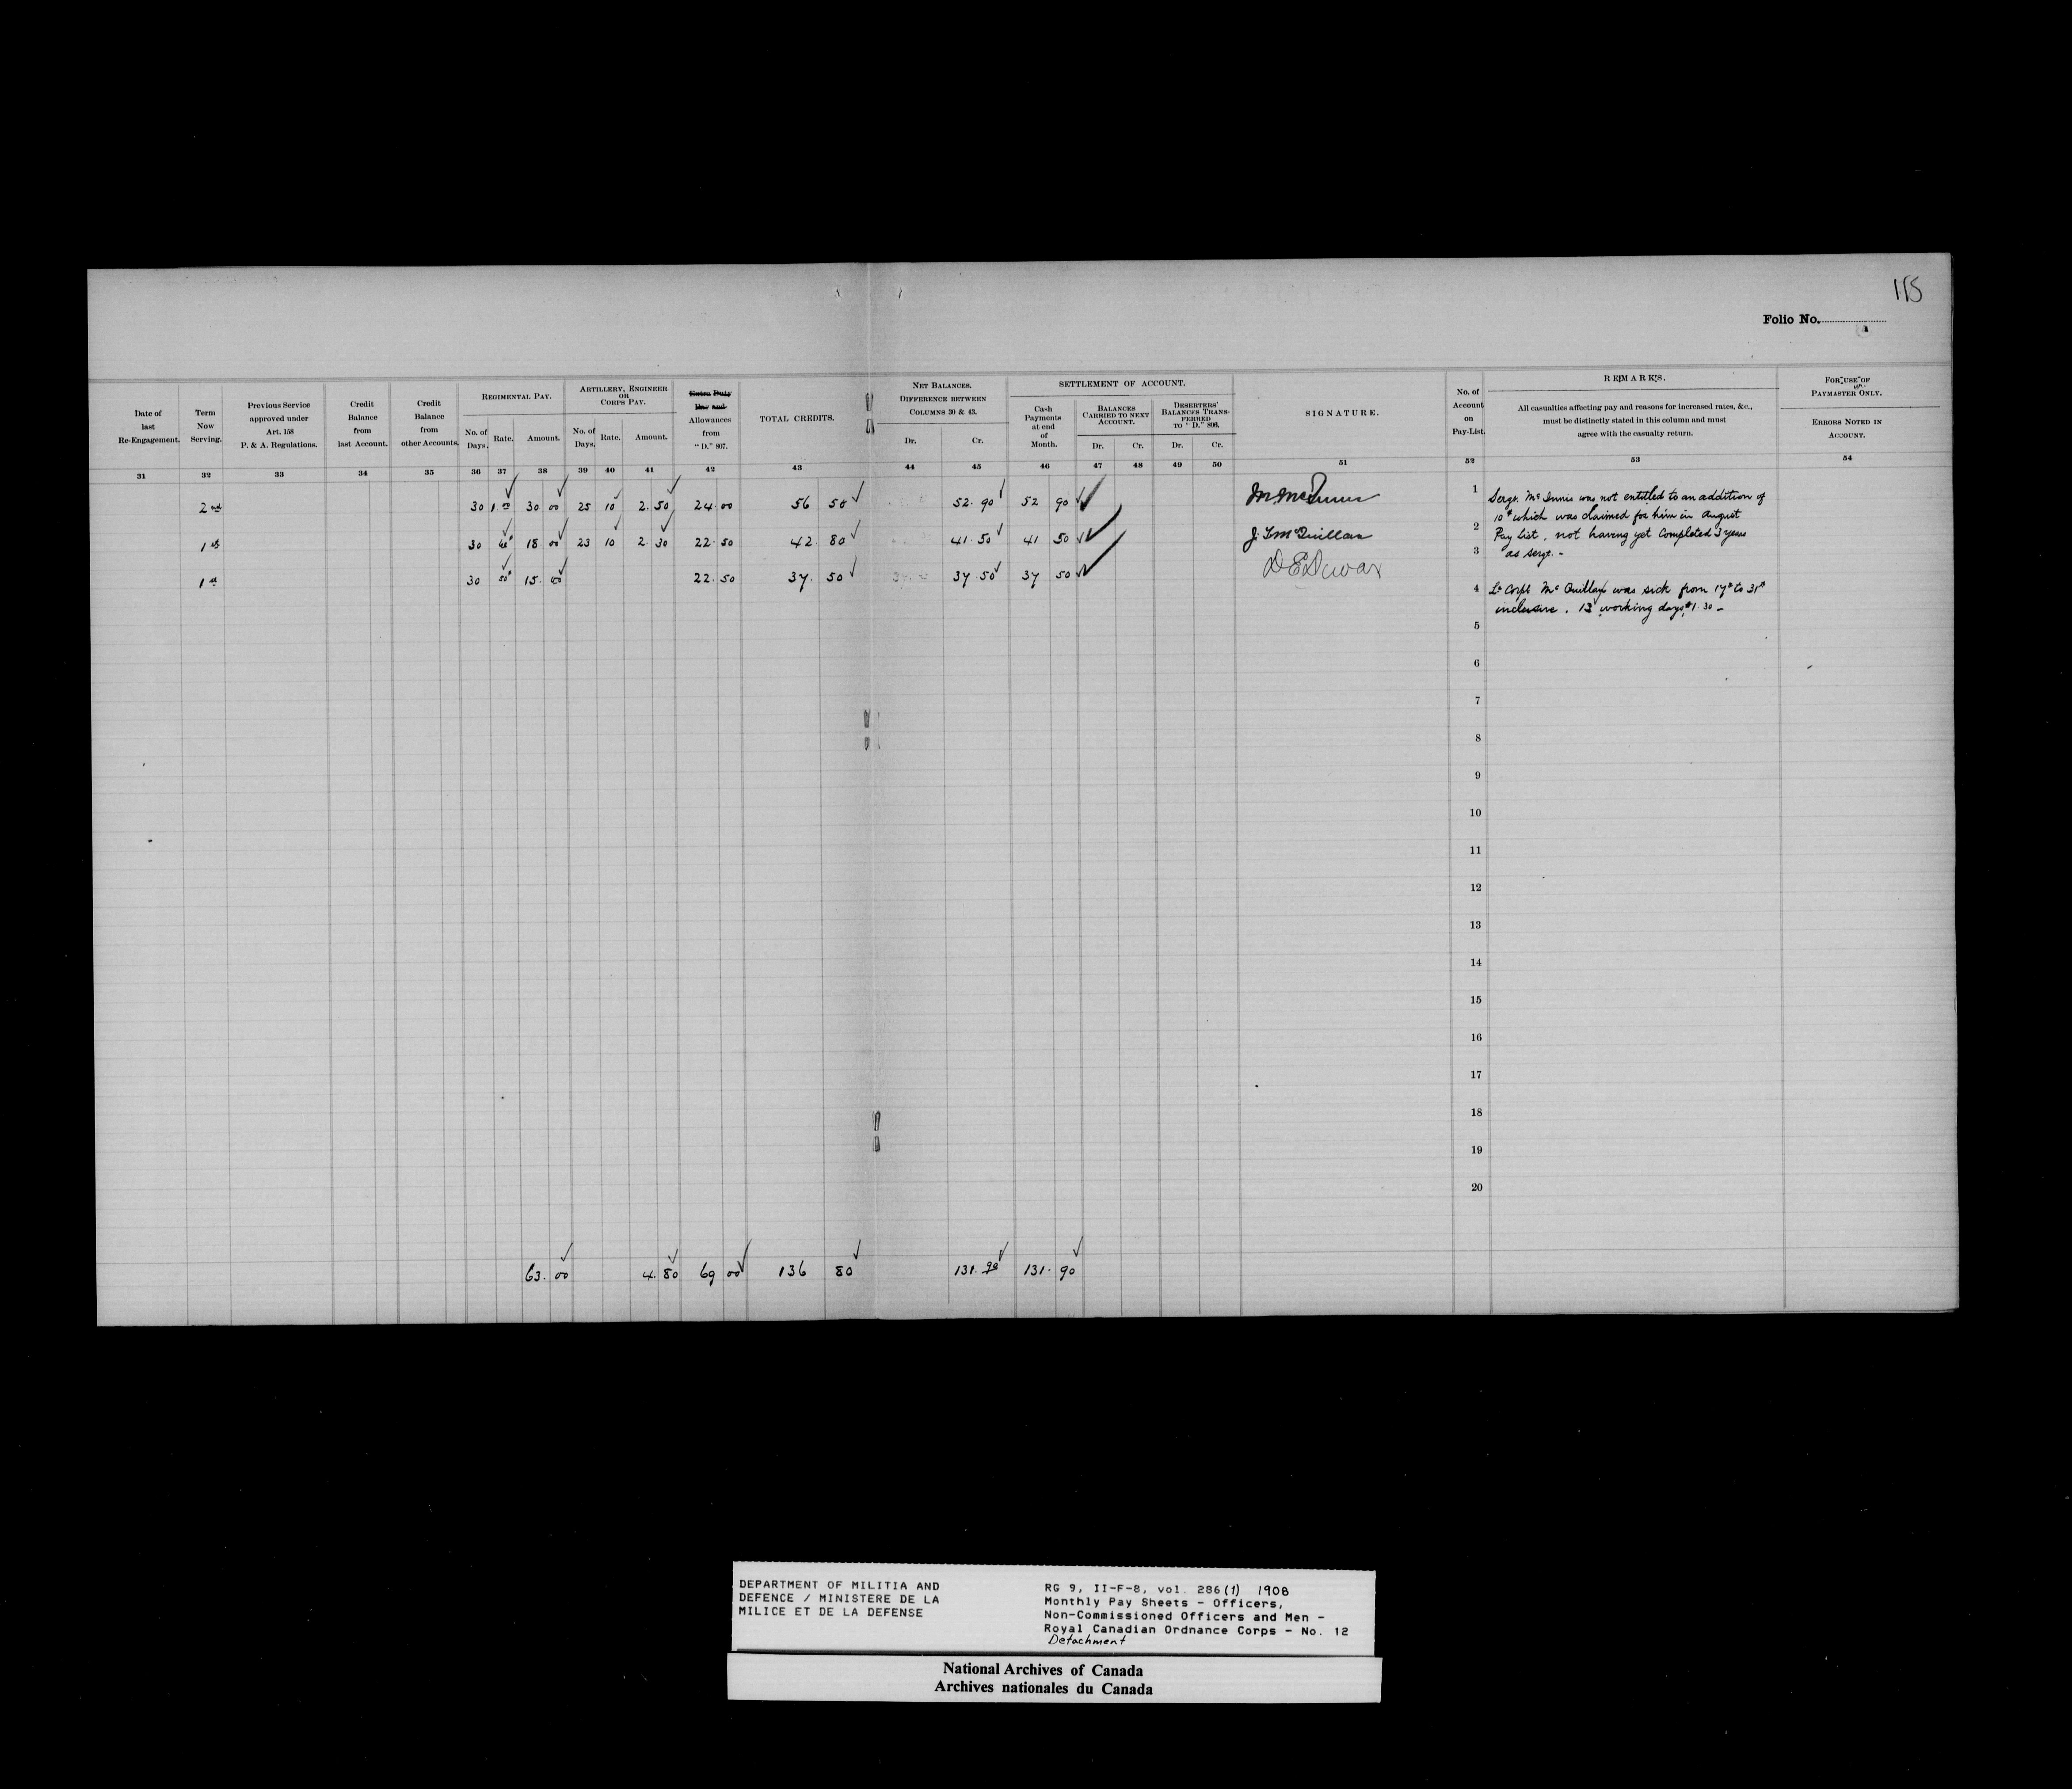 115
Folio No.
Date of last Re-Engagement.
Term Now Serving.
Previous Service approved under Art. 158 P. & A. Regulations.
Credit Balance from last Account.
Credit Balance from other Accounts.
REGIMENTAL PAY.
No. of Days. Rate. Amount.
ARTILLERY, ENGINEER OR CORPS PAY.
No. of Days. Rate. Amount.
Extra Duty Pay and Allowances from "D." 807.
TOTAL CREDITS.
NET BALANCES.
DIFFERENCE BETWEEN COLUMNS 30 & 43.
Dr. Cr.
SETTLEMENT OF ACCOUNT.
Cash Payments at end of Month.
BALANCES CARRIED TO NEXT ACCOUNT.
Dr. Cr.
DESERTERS' BALANCES TRANSFERRED TO "D." 806.
Dr. Cr.
SIGNATURE.
No. of Account on Pay-List.
REMARKS.
All casualties affecting pay and reasons for increased rates, &c.,
must be distinctly stated in this column and must
agree with the casualty return.
FOR USE OF PAYMASTER ONLY.
ERRORS NOTED IN ACCOUNT.
31 32 33 34 35 36 37 38 39 40 41 42 43 44 45 46 47 48 49 50 51 52 53 54
2nd 30 1.00 30 00 25 10 2.50 24.00 56 50 52.90 52 90 M McInnis 1
1st 30 60c 18.00 23 10 2.30 22.50 42.80 41.50 41 50 J. F. McQuillan 2
1st 30 50c 15.00 22.50 37.50 37.50 37 50 D E Dewar 3
Sergt. McInnis was not entitled to an addition of
10c which was claimed for him in August
Pay List, not having yet completed 3 years
as Sergt. -
4 Lc Corpl McQuillan was sick from 17th to 31st
inclusive. 13 working days $1.30 -
5
6
7
8
9
10
11
12
13
14
15
16
17
18
19
20
63.00 4.80 69 00 136 80 131.90 131.90
DEPARTMENT OF MILITIA AND
DEFENCE / MINISTERE DE LA
MILICE ET DE LA DEFENSE
RG 9, II-F-8, vol. 286(1) 1908
Monthly Pay Sheets - Officers,
Non-Commissioned Officers and Men -
Royal Canadian Ordnance Corps - No. 12
Detachment
National Archives of Canada
Archives nationales du Canada